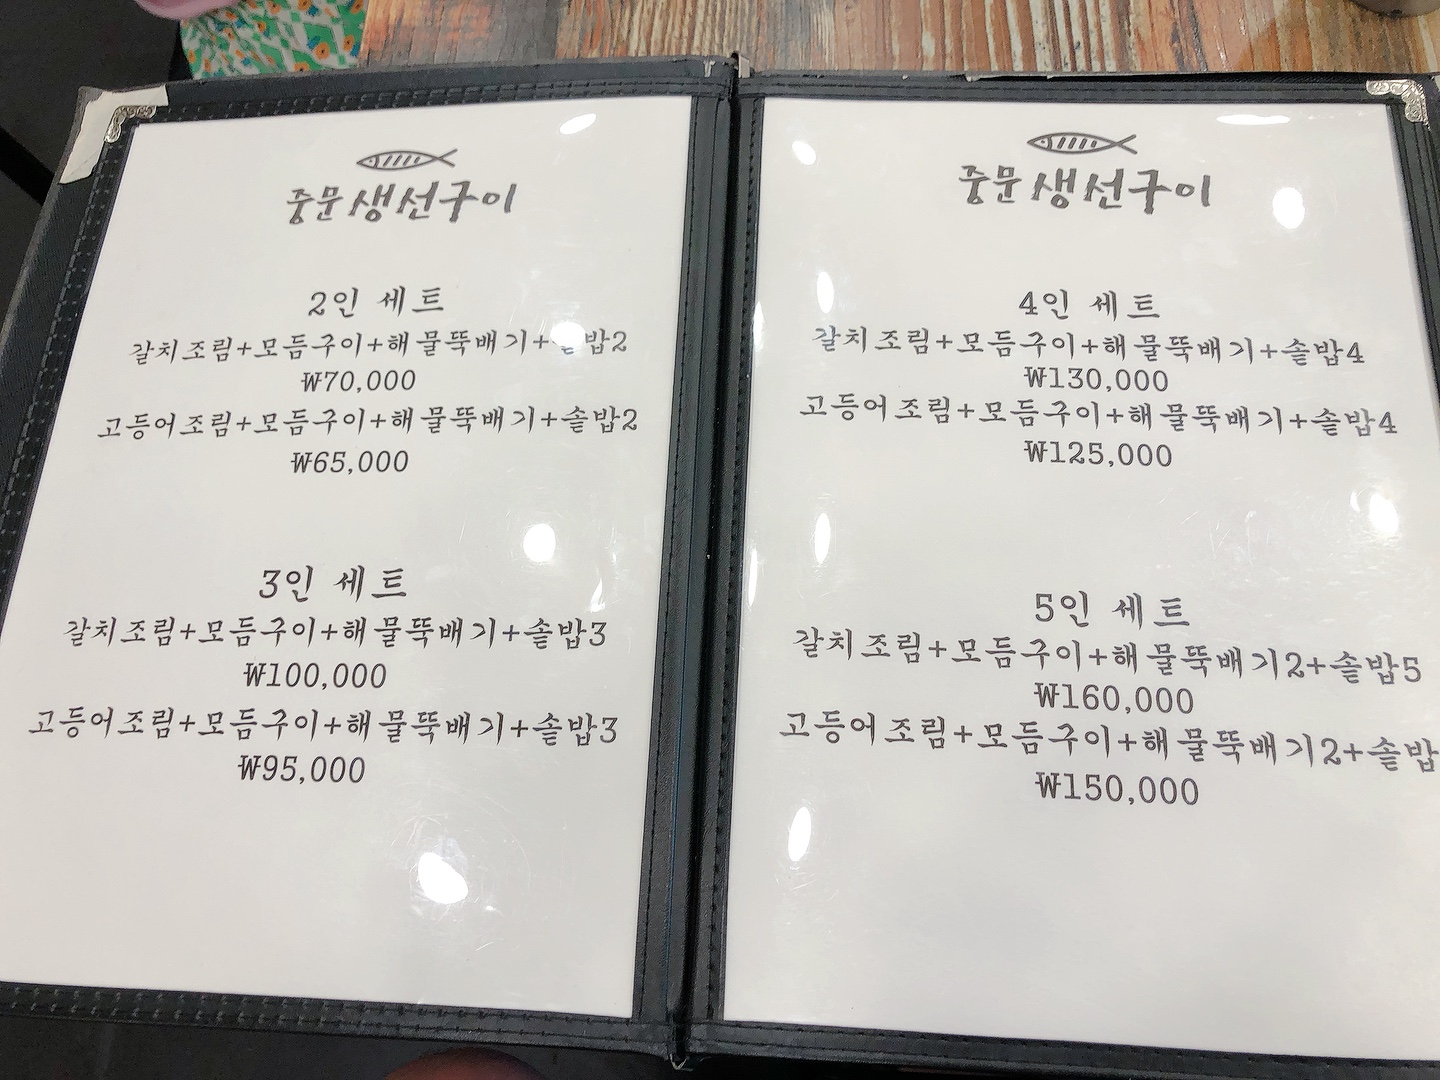 중문생선구이
2인 세트
갈치조림+모듬구이+해물뚝배기+ 밥2
₩70,000
고등어조림+모듬구이+해물뚝배기+솥밥2
₩65,000
3인 세트
갈치조림+모듬구이+해물뚝배기+솥밥3
₩100,000
고등어조림+모듬구이+해물뚝배기+솥밥3
₩95,000
중문생선구이
4인 세트
갈치조림+모듬구이+해물뚝배기+솥밥4
₩130,000
고등어조림+모듬구이+해물뚝배기+솥밥4
₩125,000
5인 세트
갈치조림+모듬구이+해물뚝배기2+솥밥5
₩160,000
고등어조림+모듬구이+해물뚝배기2+솥밥
₩150,000